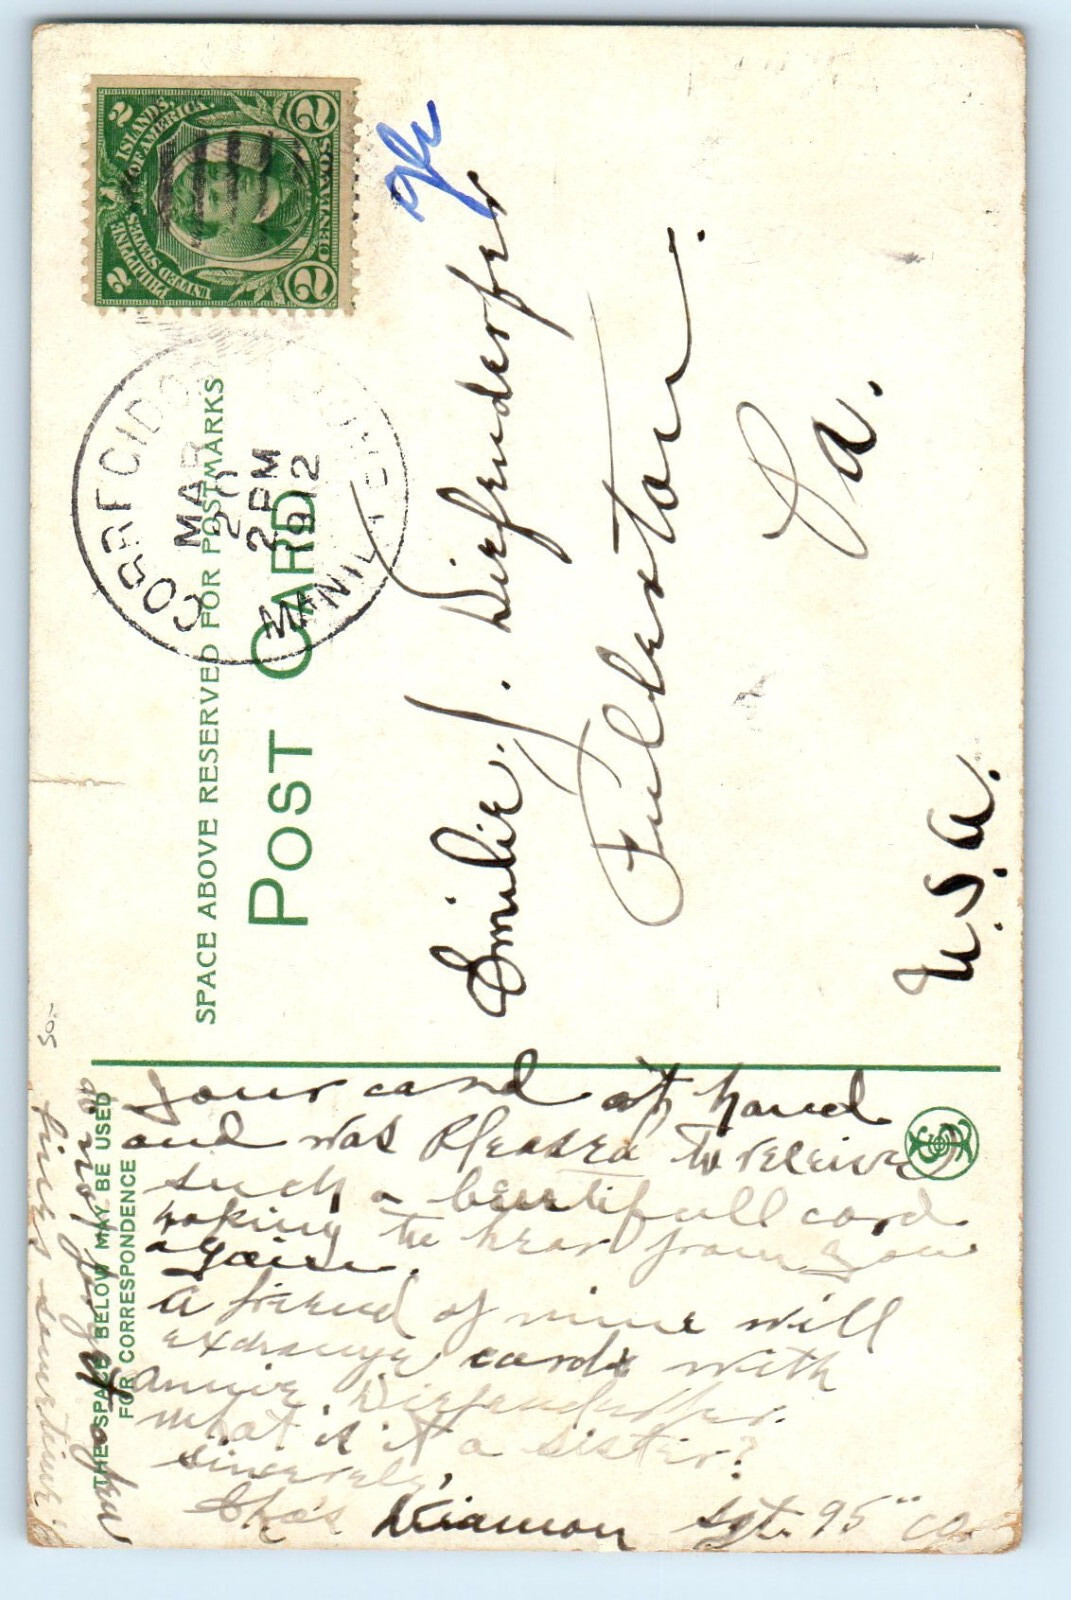 PHILIPPINE ISLANDS.
UNITED STATES OF AMERICA.
2 CENTAVOS 2
2 2
CORREGIDOR
MAR
20
2 PM
1912
MANILA
SPACE ABOVE RESERVED FOR POSTMARKS
POST CARD
Emilie. J. Diefenderfer
Fullerston.
Pa.
U.S.A.
50-
THE SPACE BELOW MAY BE USED
FOR CORRESPONDENCE
your card at hand
and was Pleased to receive
such a beautifull card
hoping to hear from you
again.
A friend of mine will
exchange cards with
Annie Dieffenderffer.
what is it a sister?
sincerely,
Chas Sgt. 95" Co.
do not forget